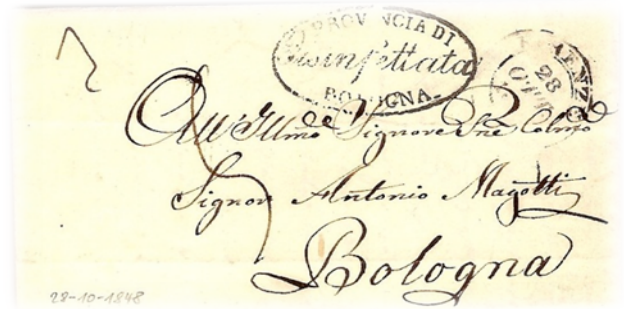 PROVINCIA DI
Disinfettata
BOLOGNA
28
OTT
All'Illmo Signore Pne Colmo
Signor Antonio Magotti
Bologna
28-10-1848